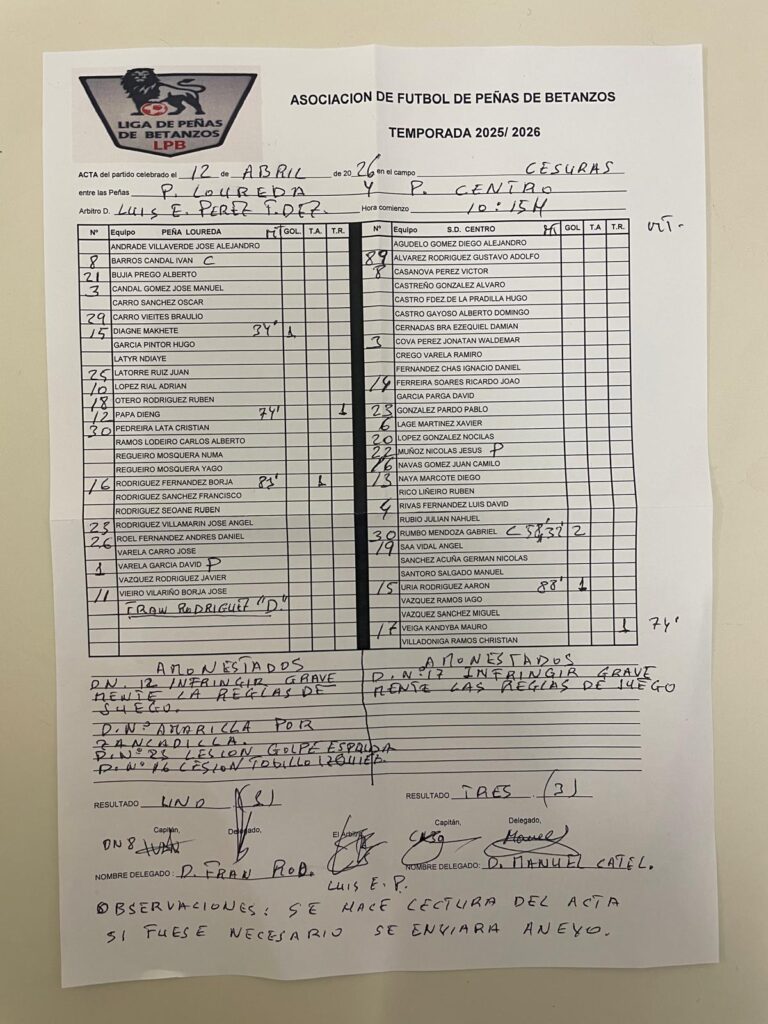 LIGA DE PEÑAS
DE BETANZOS
LPB
ASOCIACION DE FUTBOL DE PEÑAS DE BETANZOS
TEMPORADA 2025/ 2026
ACTA del partido celebrado el 12 de ABRIL de 2026 en el campo CESURAS
entre las Peñas P. LOUREDA Y P. CENTRO
Arbitro D. LUIS E. PEREZ F.DEZ. Hora comienzo 10:15H
Nº Equipo PEÑA LOUREDA MT GOL. T.A. T.R.
ANDRADE VILLAVERDE JOSE ALEJANDRO
8 BARROS CANDAL IVAN C
21 BUJIA PREGO ALBERTO
3 CANDAL GOMEZ JOSE MANUEL
CARRO SANCHEZ OSCAR
29 CARRO VIEITES BRAULIO
15 DIAGNE MAKHETE 34' 1
GARCIA PINTOR HUGO
LATYR NDIAYE
25 LATORRE RUIZ JUAN
10 LOPEZ RIAL ADRIAN
18 OTERO RODRIGUEZ RUBEN
12 PAPA DIENG 74' 1
30 PEDREIRA LATA CRISTIAN
RAMOS LODEIRO CARLOS ALBERTO
REGUEIRO MOSQUERA NUMA
REGUEIRO MOSQUERA YAGO
16 RODRIGUEZ FERNANDEZ BORJA 81' 1
RODRIGUEZ SANCHEZ FRANCISCO
RODRIGUEZ SEOANE RUBEN
23 RODRIGUEZ VILLAMARIN JOSE ANGEL
26 ROEL FERNANDEZ ANDRES DANIEL
VARELA CARRO JOSE
1 VARELA GARCIA DAVID P
VAZQUEZ RODRIGUEZ JAVIER
11 VIEIRO VILARIÑO BORJA JOSE
FRAN RODRIGUEZ "D."
Nº Equipo S.D. CENTRO GOL T.A T.R. MT-
AGUDELO GOMEZ DIEGO ALEJANDRO
89 ALVAREZ RODRIGUEZ GUSTAVO ADOLFO
8 CASANOVA PEREZ VICTOR
CASTREÑO GONZALEZ ALVARO
CASTRO FDEZ.DE LA PRADILLA HUGO
CASTRO GAYOSO ALBERTO DOMINGO
CERNADAS BRA EZEQUIEL DAMIAN
3 COVA PEREZ JONATAN WALDEMAR
CREGO VARELA RAMIRO
FERNANDEZ CHAS IGNACIO DANIEL
14 FERREIRA SOARES RICARDO JOAO
GARCIA PARGA DAVID
23 GONZALEZ PARDO PABLO
6 LAGE MARTINEZ XAVIER
20 LOPEZ GONZALEZ NOCILAS
22 MUÑOZ NICOLAS JESUS P
16 NAVAS GOMEZ JUAN CAMILO
13 NAYA MARCOTE DIEGO
RICO LIÑEIRO RUBEN
4 RIVAS FERNANDEZ LUIS DAVID
RUBIO JULIAN NAHUEL
30 RUMBO MENDOZA GABRIEL C 2
19 SAA VIDAL ANGEL
SANCHEZ ACUÑA GERMAN NICOLAS
SANTORO SALGADO MANUEL
15 URIA RODRIGUEZ AARON 88' 1
VAZQUEZ RAMOS IAGO
VAZQUEZ SANCHEZ MIGUEL
17 VEIGA KANDYBA MAURO 1 74'
VILLADONIGA RAMOS CHRISTIAN
AMONESTADOS
DN. 12 INFRINGIR GRAVE
MENTE LA REGLAS DE
JUEGO.
D.Nº AMARILLA POR
ZANCADILLA.
D.Nº 25 LESION GOLPE ESPALDA
D.Nº 16 LESION TOBILLO IZQUIED.
AMONESTADOS
D.Nº 17 INFRINGIR GRAVE
MENTE LAS REGLAS DE JUEGO
RESULTADO UNO (1)
RESULTADO TRES (3)
Capitán, Delegado, El Arbitro Capitán, Delegado,
DN 8 IVAN
Manuel
NOMBRE DELEGADO: D. FRAN ROD.
NOMBRE DELEGADO: D. MANUEL CATEL.
LUIS E. P.
OBSERVACIONES: SE HACE LECTURA DEL ACTA
SI FUESE NECESARIO SE ENVIARA ANEXO.